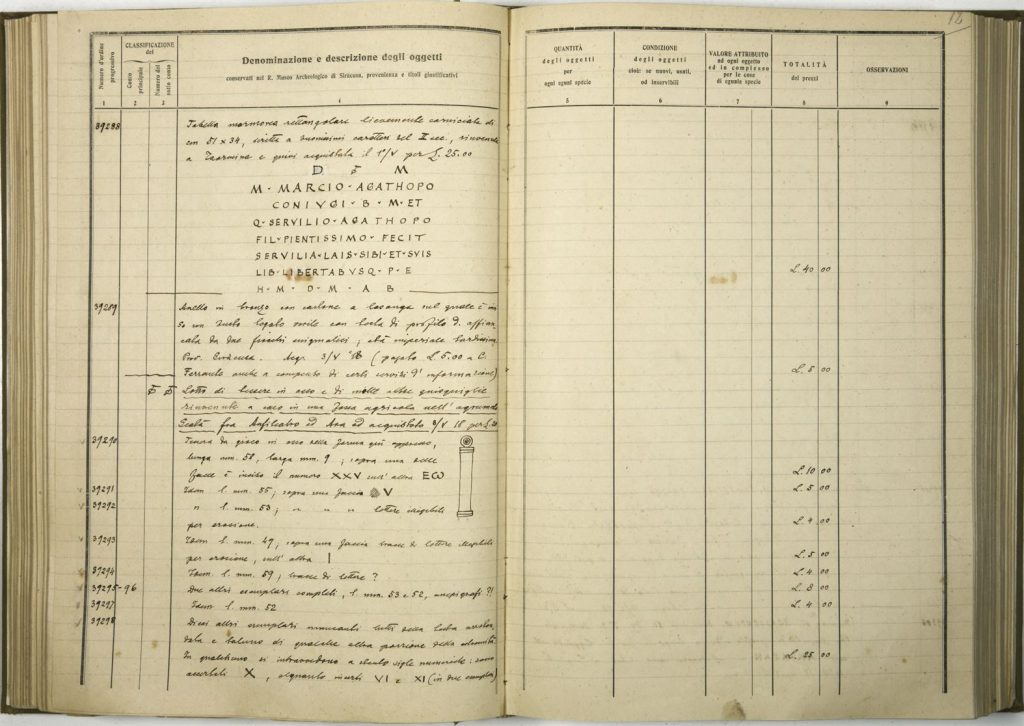 12
Numero d'ordine progressivo
CLASSIFICAZIONE del
Conto principale
Numero del sotto conto
Denominazione e descrizione degli oggetti
conservati nel R. Museo Archeologico di Siracusa, provenienza e titoli giustificativi
QUANTITÀ degli oggetti per ogni eguale specie
CONDIZIONE degli oggetti cioè: se nuovi, usati, od inservibili
VALORE ATTRIBUITO ad ogni oggetto ed in complesso per le cose di eguale specie
TOTALITÀ dei prezzi
OSSERVAZIONI
1 2 3 4 5 6 7 8 9
39288 Tabella marmorea rettangolare lievemente corniciata di
cm 51 x 34, scritta a buonissimi caratteri del II sec., rinvenuta
a Taormina e quivi acquistata il 1°/V per L. 25.00
D M
M · MARCIO · AGATHOPO
CONIVGI · B · M · ET
Q · SERVILIO · AGATHOPO
FIL · PIENTISSIMO · FECIT
SERVILIA · LAIS · SIBI · ET · SVIS
LIB · LIBERTABVSQ · P · E L. 40 00
H · M · D · M · A B
39289 Anello in bronzo con castone a losanga sul quale è in
so un busto togato virile con testa di profilo d. affian
cata da due enigmatici; età imperiale tardissima
Prov. Siracusa. Acq. 3/V 18 (pagato L 5.00 a C.
Ferrante anche a compenso di certi servizi d'informazione) L. 5 00
Lotto di tessere in osso e di molte altre quisquiglie
rinvenute a caso in una fossa agricola nell'
fra Anfiteatro ed Ara ed acquistato 8/V 18 per L.
39290 Tessera da gioco in osso della forma qui appresso,
lunga mm. 58, larga mm. 9; sopra una delle
facce è inciso il numero XXV sull'altra EW L. 10 00
39291 Idem l. mm. 55; sopra una faccia V L. 5 00
39292 " l. mm. 53; " " " lettere illegibili
per erosione. L. 4 00
39293 Idem l. mm. 49, sopra una faccia tracce di lettere illegibili
per erosione, sull'altra I L. 5 00
39294 Idem l. mm. 59, tracce di lettere? L. 4 00
39295-96 Due altri esemplari completi, l. mm. 53 e 52, anepigrafi?! L. 8 00
39297 Idem l. mm. 52 L. 4 00
39298 Dieci altri esemplari mancanti tutti della testa
data e taluno di qualche altra porzione della estremità.
In qualcheduno si intravvedono a stento sigle numeriche: sono L. 25 00
accertati X, alquanto incerti VI e XI (in due esemplari)